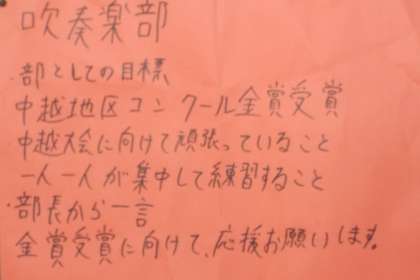 吹奏楽部
・部としての目標
中越地区コンクール金賞受賞
中越大会に向けて頑張っていること
一人一人が集中して練習すること
・部長から一言
金賞受賞に向けて、応援お願いします。